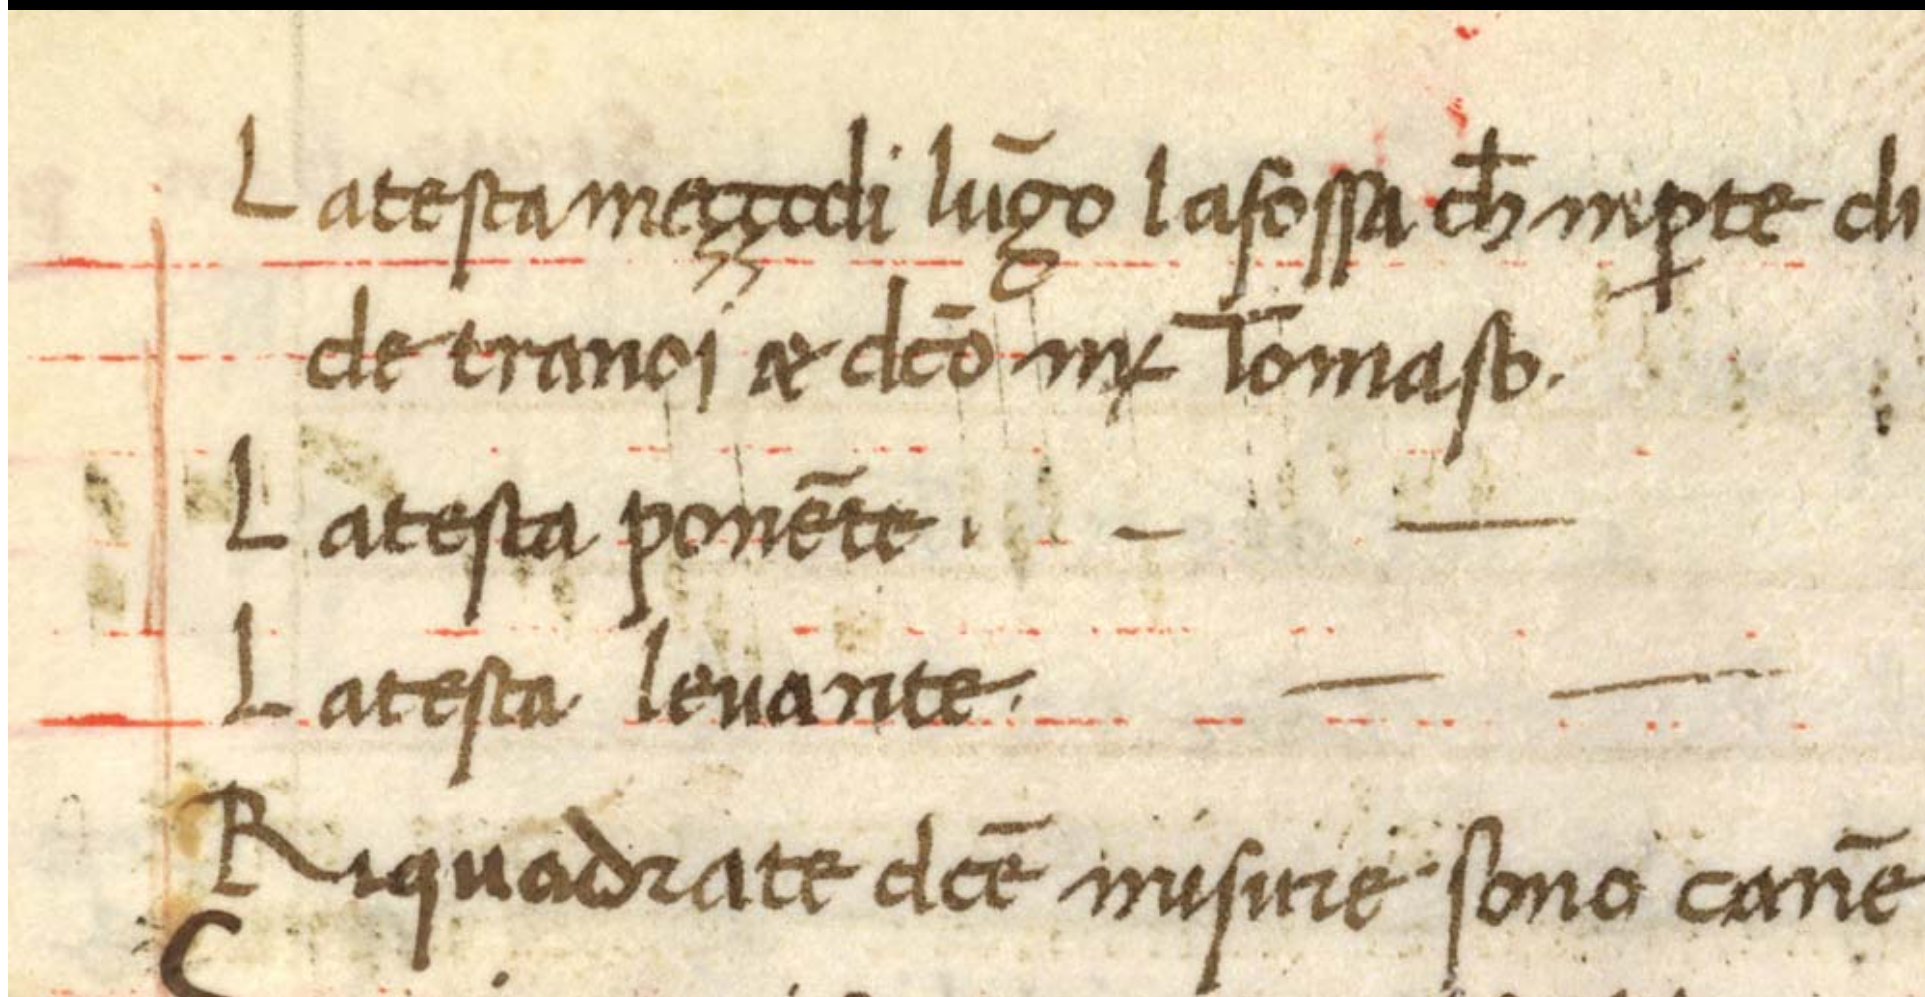 Latesta mezzodi lūgo lafossa ch̄ inꝑte di
de tranoi & dcō mr Tomaso.
Latesta ponēte.
Latesta levante.
Riquadrate dcē misure sono canē